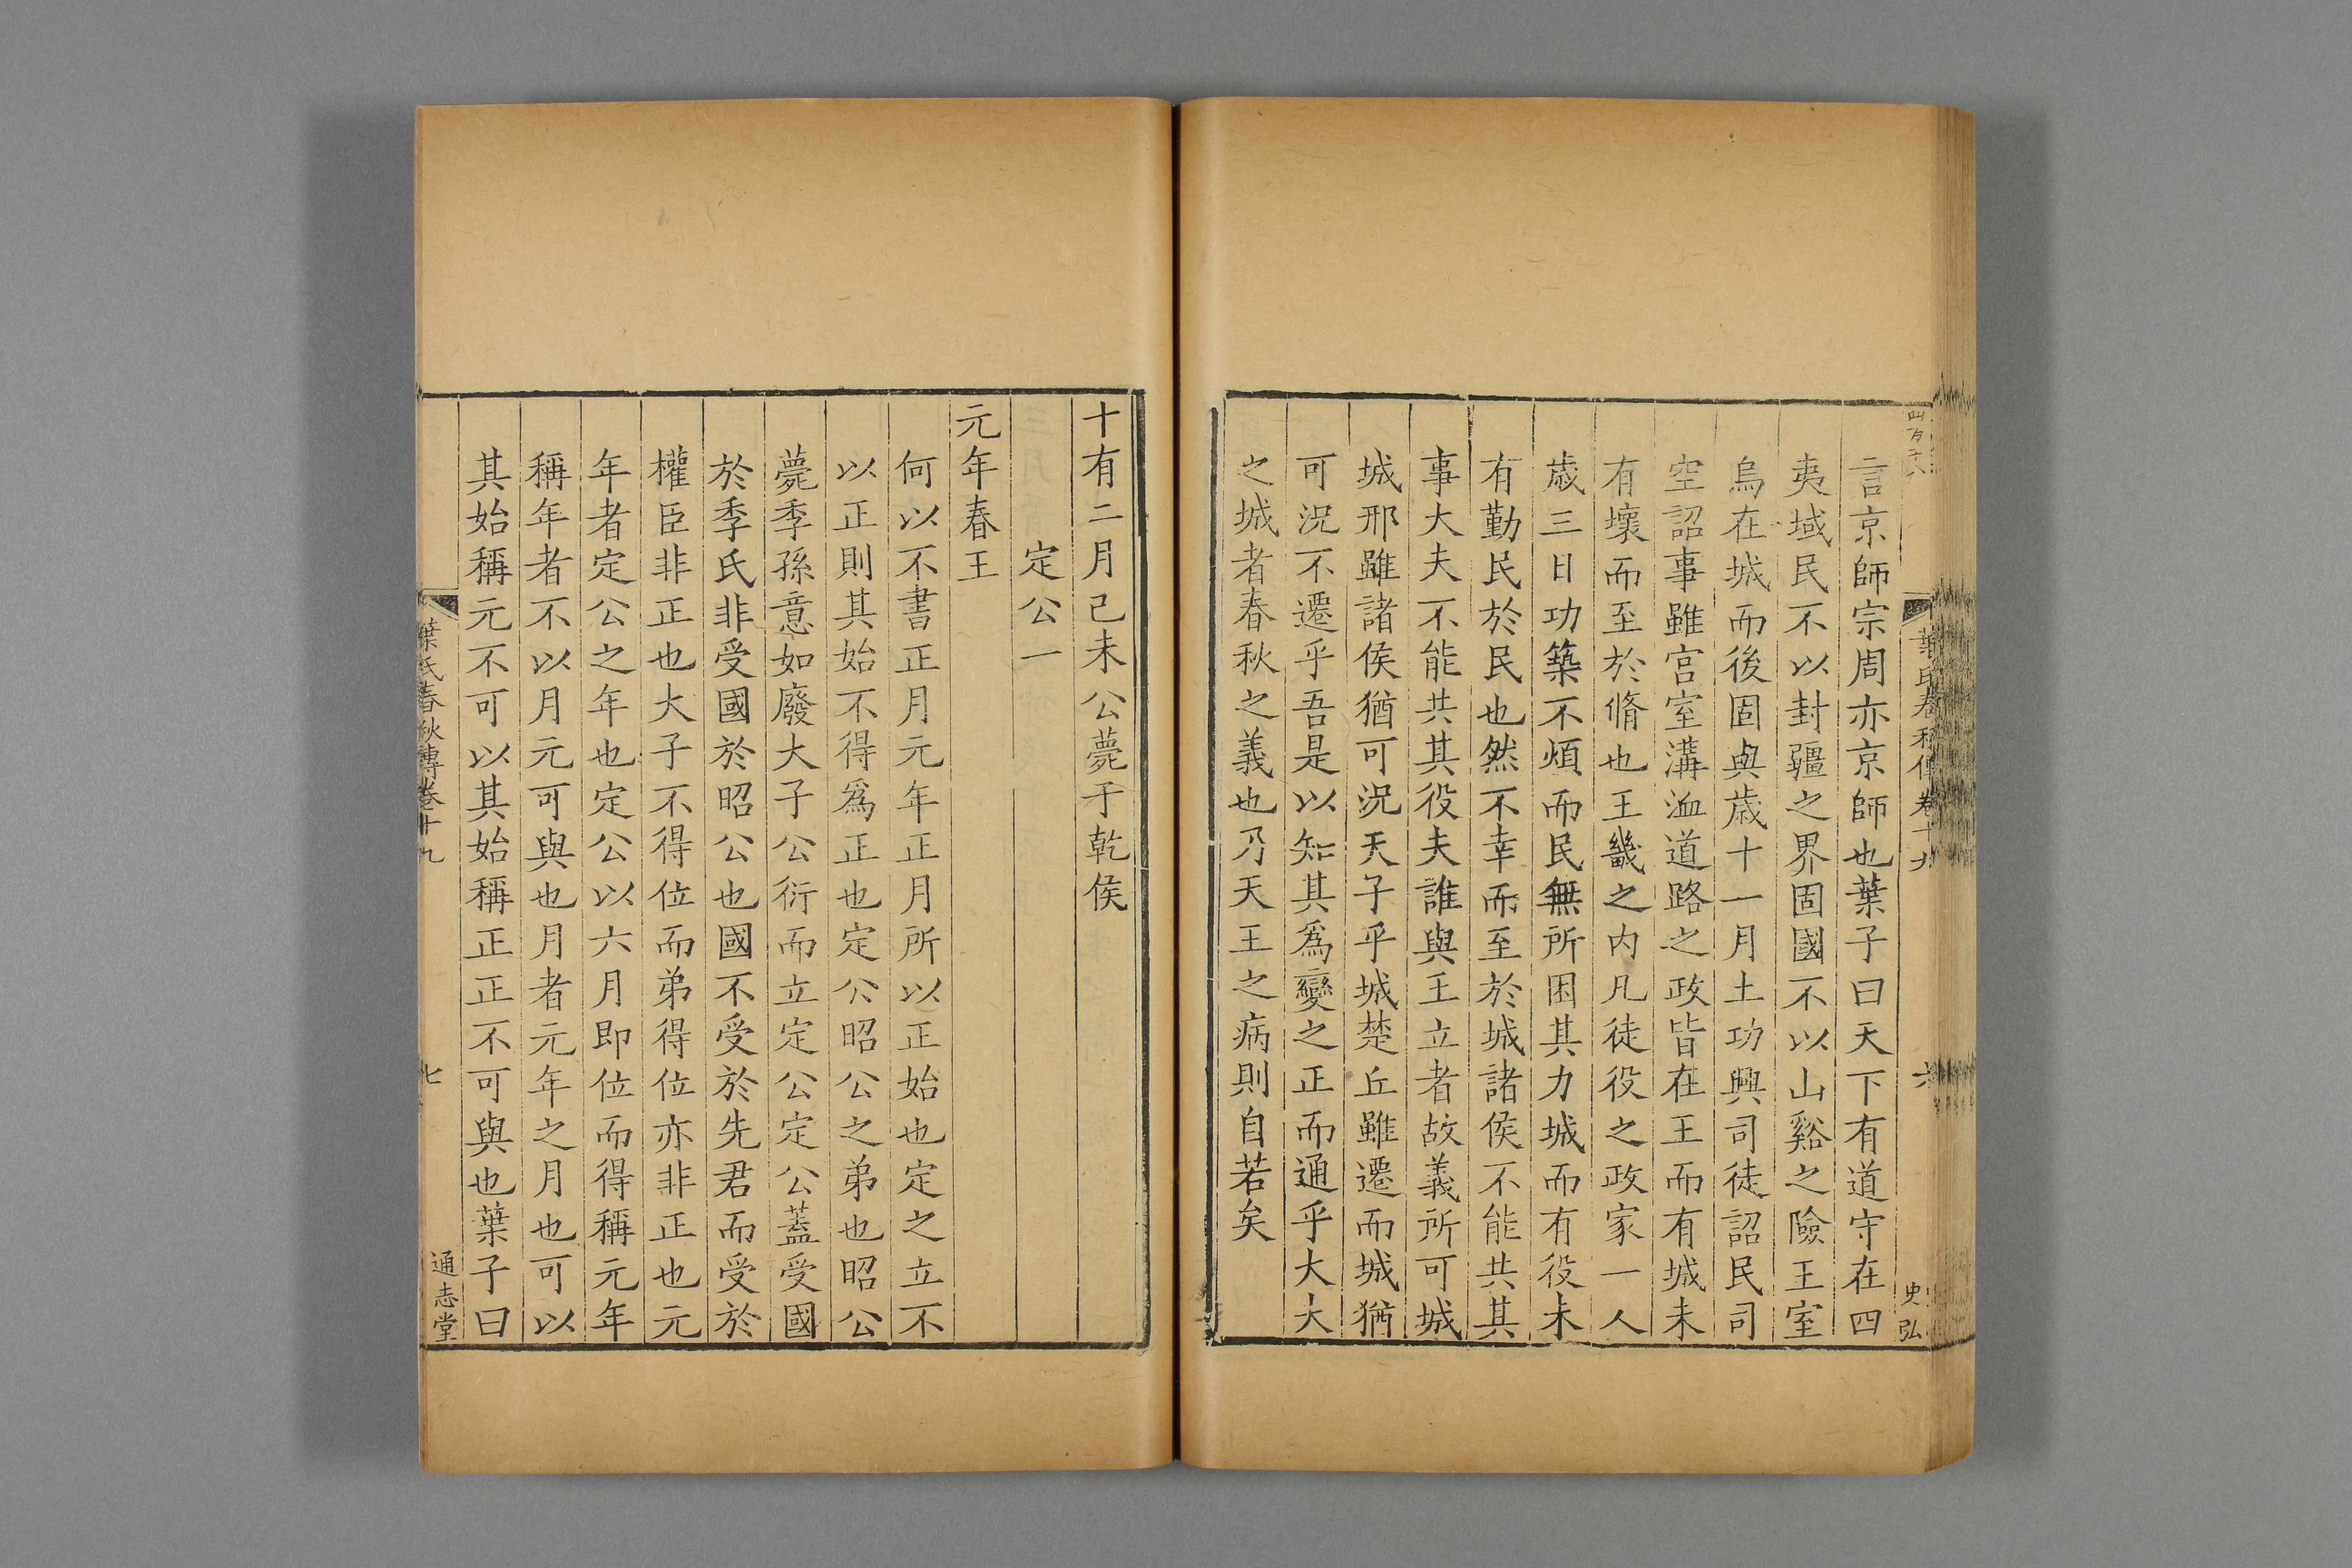 言京師宗周亦京師也葉子曰天下有道守在四
夷域民不以封疆之界固國不以山谿之險王室
烏在城而後固與歳十一月土功興司徒詔民司
空詔事雖宫室溝洫道路之政皆在王而有城未
有壞而至於脩也王畿之内凡徒役之政家一人
歳三日功築不煩而民無所困其力城而有役未
有勤民於民也然不幸而至於城諸侯不能共其
事大夫不能共其役夫誰與王立者故義所可城
城邢雖諸侯猶可況天子乎城楚丘雖遷而城猶
可況不遷乎吾是以知其爲變之正而通乎大夫
之城者春秋之義也乃天王之病則自若矣
史弘
十有二月己未公薨于乾侯
定公一
元年春王
何以不書正月元年正月所以正始也定之立不
以正則其始不得爲正也定公昭公之弟也昭公
薨季孫意如廢大子公衍而立定公定公蓋受國
於季氏非受國於昭公也國不受於先君而受於
權臣非正也大子不得位而弟得位亦非正也元
年者定公之年也定公以六月即位而得稱元年
稱年者不以月元可與也月者元年之月也可以
其始稱元不可以其始稱正正不可與也葉子曰
葉氏春秋傳卷十九
七
通志堂